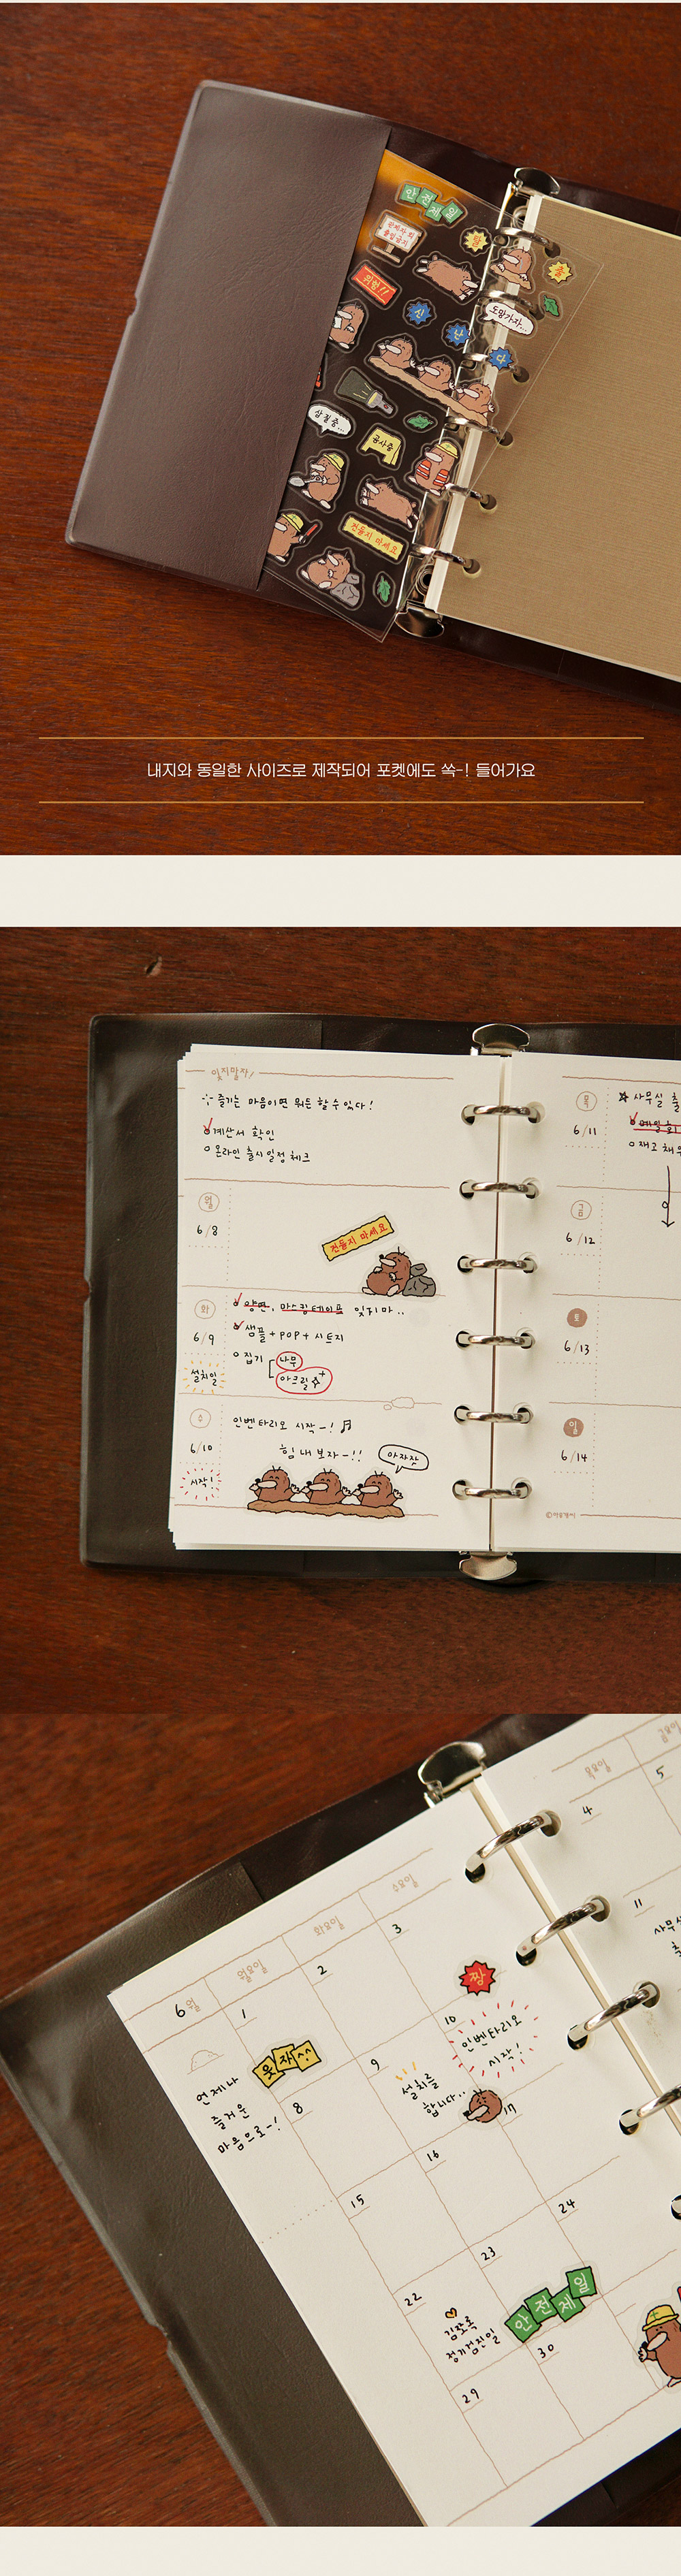 안전제일
관계자 외
출입금지
위험!!
신
난
다
도망가자...
삽질중...
공사중
건들지 마세요
내지와 동일한 사이즈로 제작되어 포켓에도 쏙-! 들어가요
잊지말자!
즐기는 마음이면 뭐든 할 수 있다!
계산서 확인
온라인 출시 일정 체크
월
6/8
건들지 마세요
화
6/9
설치일
양면, 마스킹테이프 잊지마..
샘플 + POP + 시트지
집기
나무
아크릴
수
6/10
시작!
인벤타리오 시작-!
힘내보자-!!
아자잣
목
6/11
사무실 출
재고 채우
금
6/12
토
6/13
일
6/14
6월
월요일
화요일
수요일
목요일
금요일
1
2
3
4
5
언제나
즐거운
마음으로-!
웃자^^
8
9
설치를
합니다..
10
짱
인벤타리오
시작!
11
15
16
17
22
23
24
정기검진일
안전제일
29
30